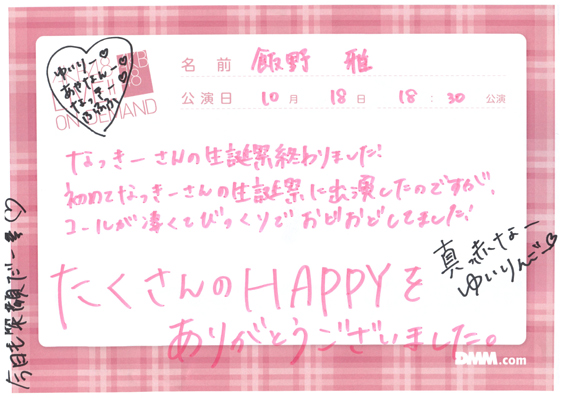 ゆいりー♡
あやなん♡
なっきー♡
ON DEMAND
名前 飯野 雅
公演日 10月 18日 18:30 公演
なっきーさんの生誕祭終わりました!
初めてなっきーさんの生誕祭に出演したのですが、
コールが凄くてびっくりでおどおどしてました!
たくさんのHAPPYを
ありがとうございました。
真っ赤なー
ゆいりんご
今日も笑顔だーま♡
DMM.com